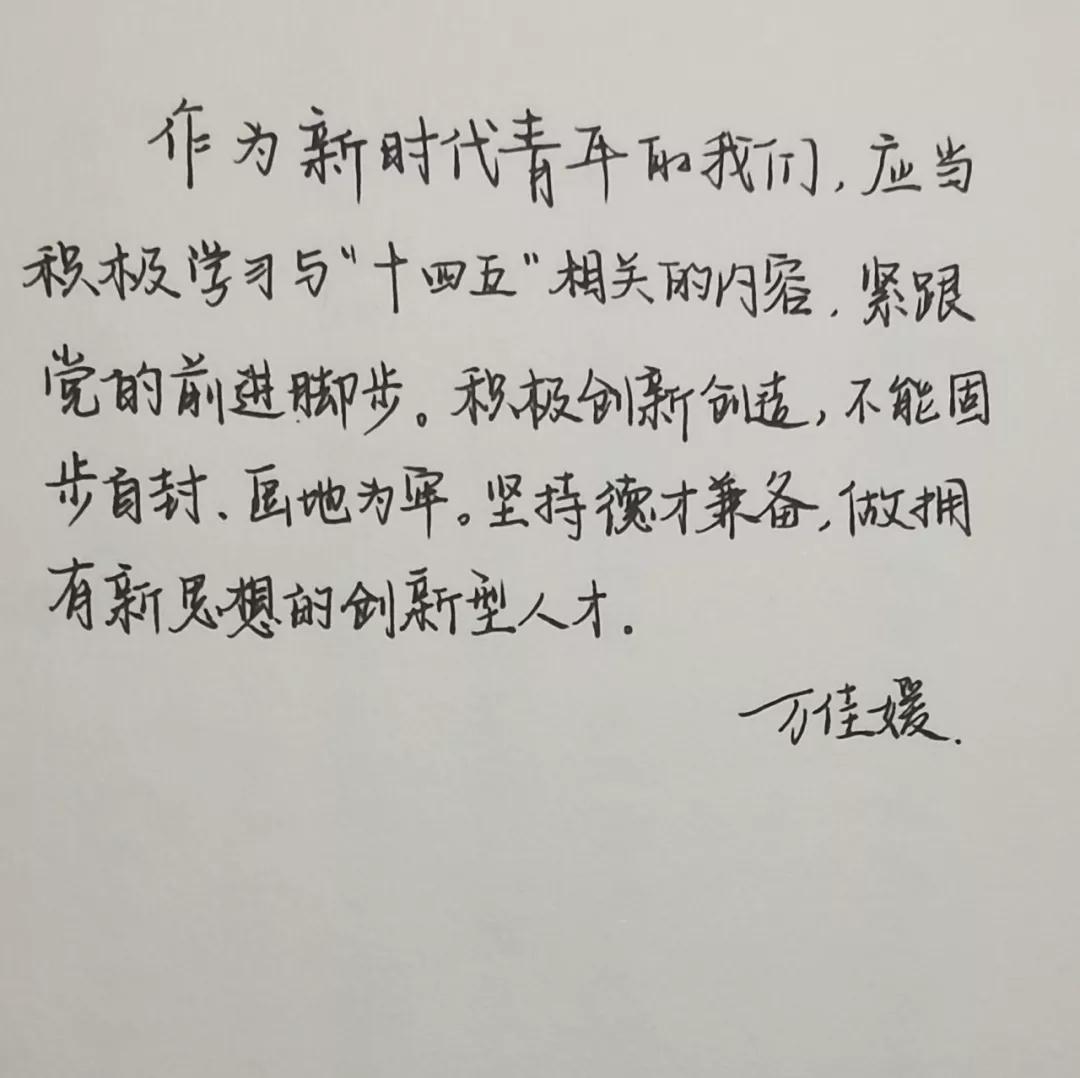 作为新时代青年的我们，应当
积极学习与“十四五”相关的内容，紧跟
党的前进脚步。积极创新创造，不能固
步自封、画地为牢。坚持德才兼备，做拥
有新思想的创新型人才.
万佳媛.